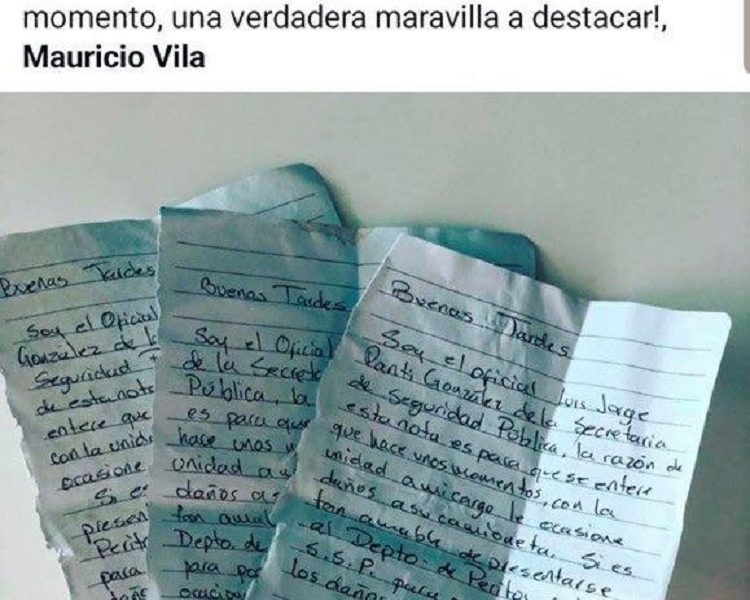 momento, una verdadera maravilla a destacar!,
Mauricio Vila
Buenas Tardes
Soy el Oficial
González de l
Seguridad P
de esta nota
entere que
con la unid
ocasione
Si es
presen
Perito
para
Buenas Tardes
Soy el Oficial
de la Secret
Pública, la
es para que
hace unos
unidad a
daños a s
tan amabl
Depto. de
para po
Buenas Tardes
Soy el oficial Luis Jorge
Panti González de la Secretaria
de Seguridad Pública, la razón de
esta nota es para que se entere
que hace unos momentos, con la
unidad a mi cargo le ocasione
daños a su camioneta. Si es
tan amable de presentarse
al Depto. de Peritos
S.S.P. para
los daños